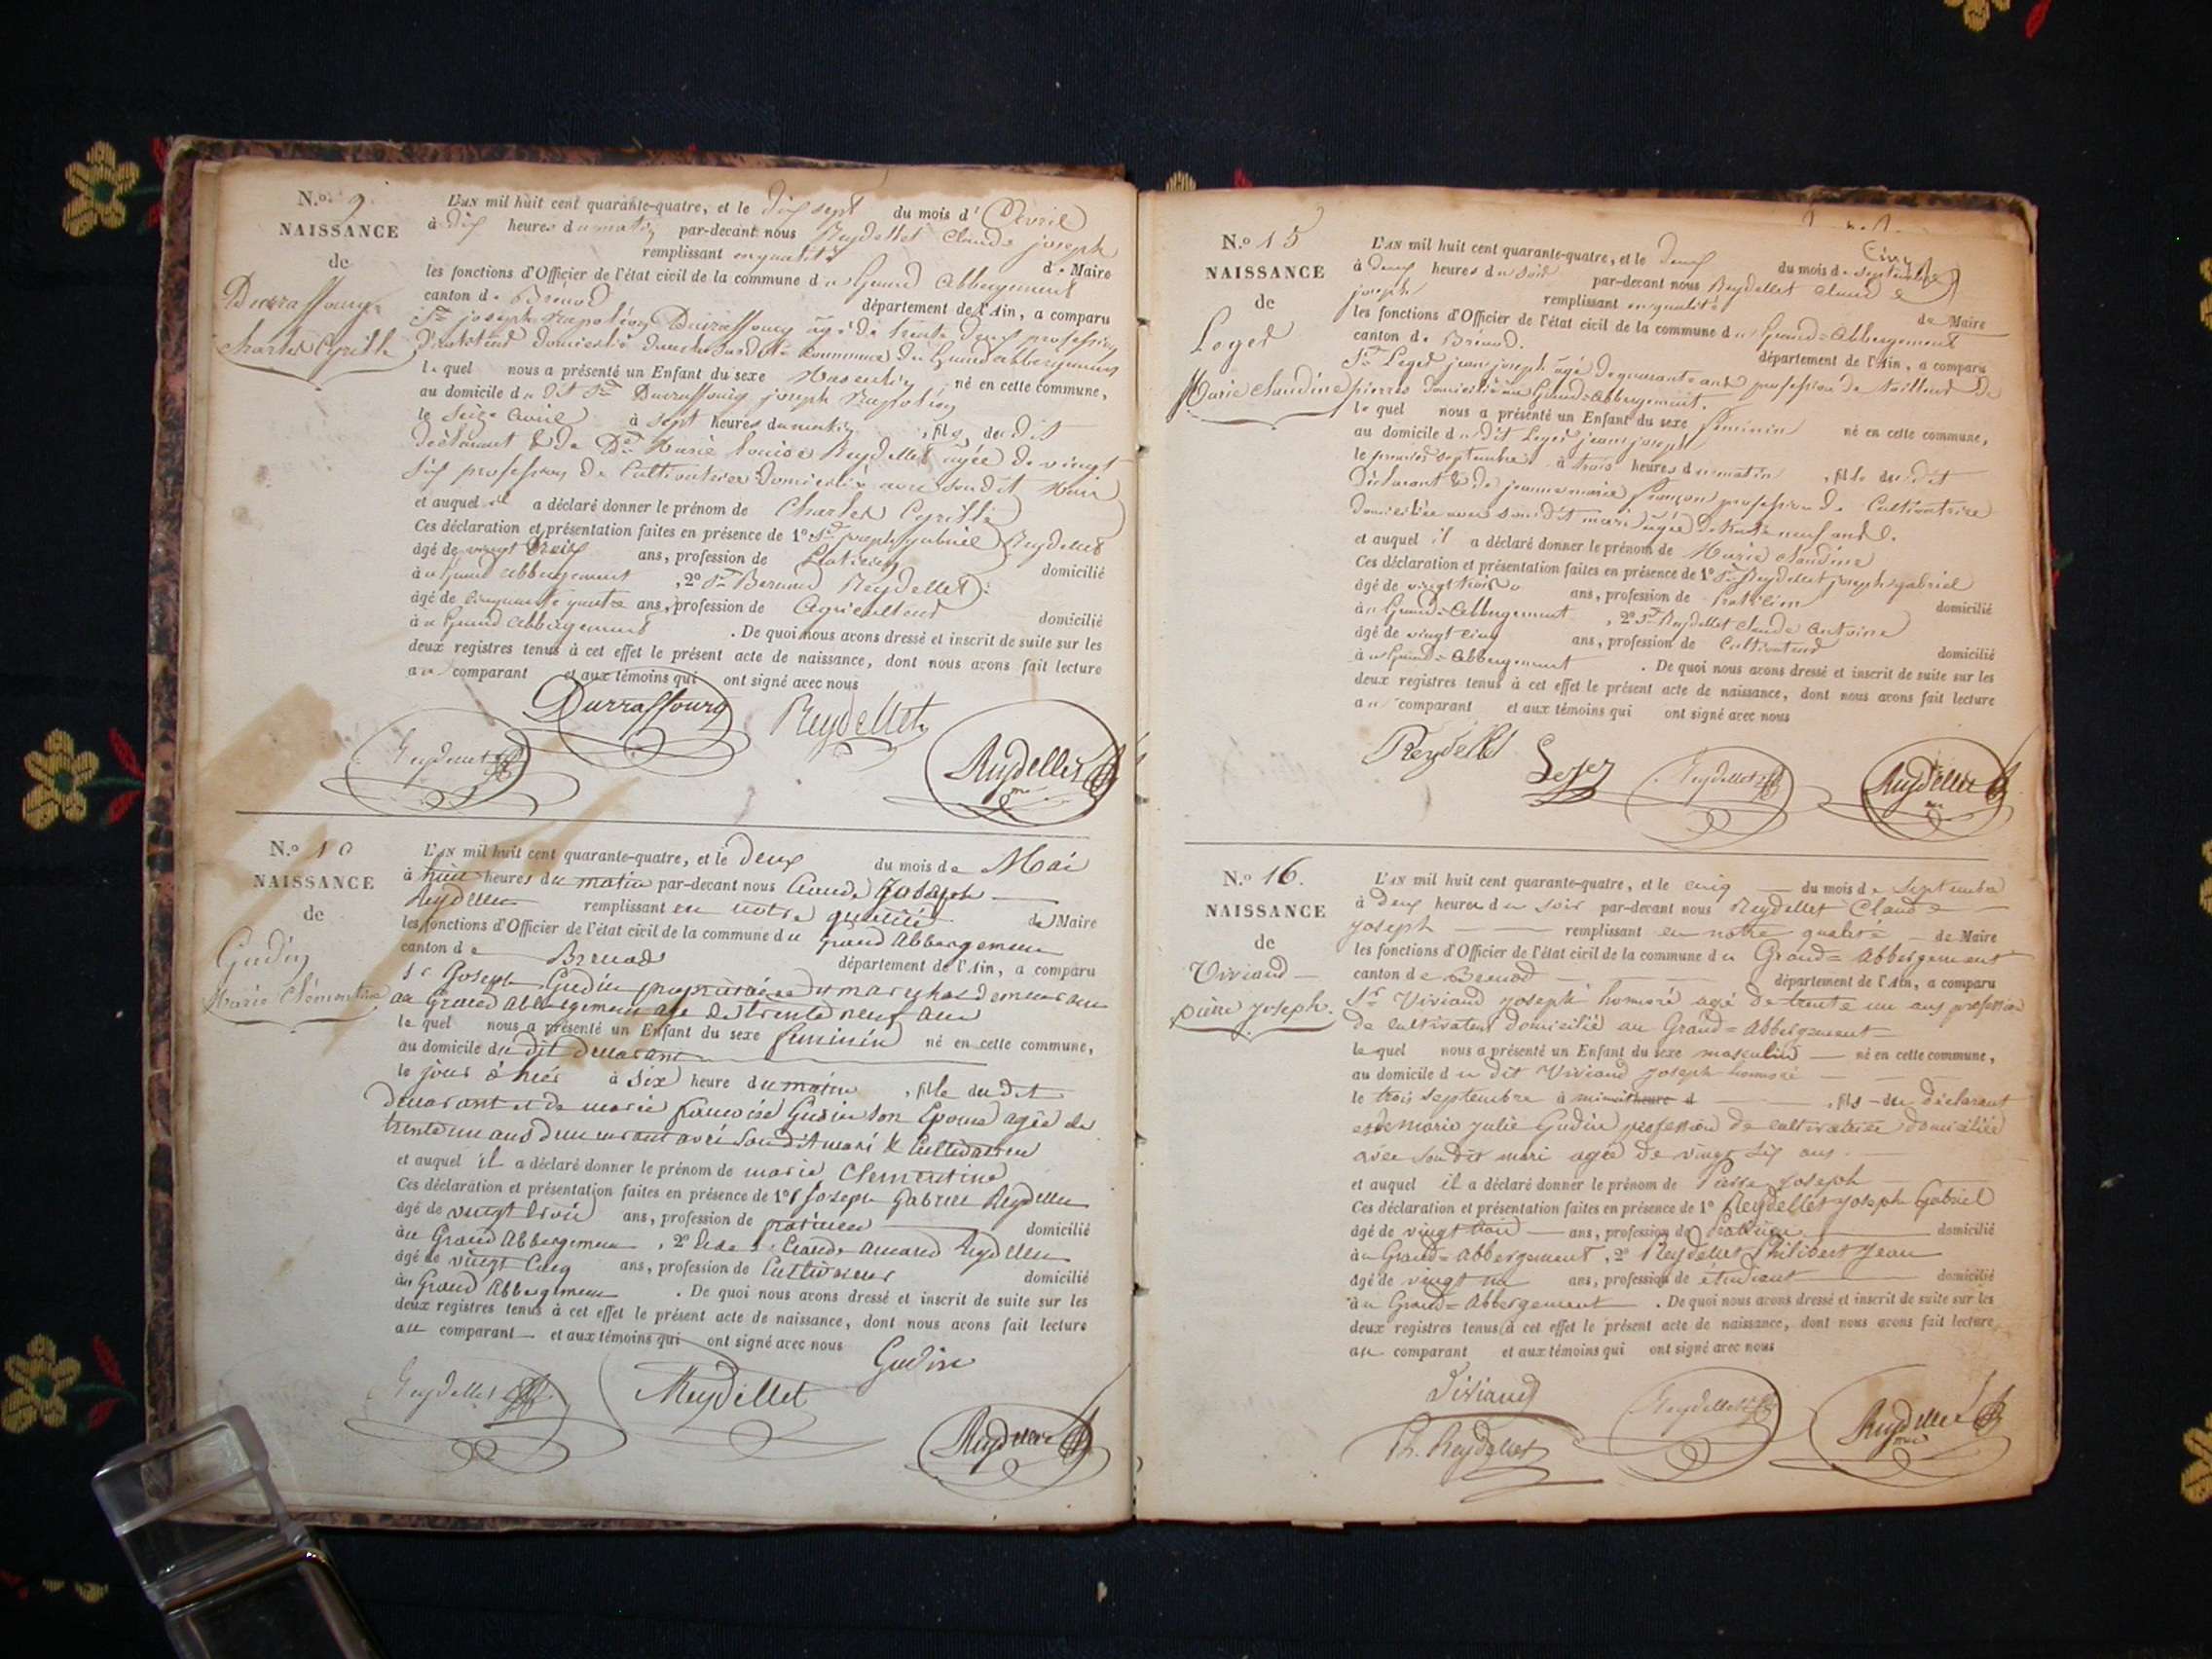 N.º 9
NAISSANCE
de
Durraffourg
Charles Cyrille
L'AN mil huit cent quarante-quatre, et le dix sept du mois d'Avril
à dix heures du matin par-devant nous Reydellet Claude joseph
remplissant en qualité de Maire
les fonctions d'Officier de l'état civil de la commune du Grand Abbergement
canton de Brénod département de l'Ain, a comparu
Sr joseph Napoléon Durraffourg âgé de trente deux profession
domicilié commune du Grand abbergement
lequel nous a présenté un Enfant du sexe Masculin, né en cette commune,
au domicile du dit Sr Durraffourg joseph Napoléon
le seize avril à sept heures du matin, fils du dit
déclarant & de De Marie louise Reydellet agée de vingt
six profession de Cultivatrice domiciliée avec son dit Mari
et auquel il a déclaré donner le prénom de Charles Cyrille
Ces déclaration et présentation faites en présence de 1º Sr joseph gabriel Reydellet
âgé de vingt trois ans, profession de Praticien domicilié
au Grand abbergement, 2º Sr Bernard Reydellet
âgé de cinquante quatre ans, profession de Agriculteur domicilié
au Grand abbergement. De quoi nous avons dressé et inscrit de suite sur les
deux registres tenus à cet effet le présent acte de naissance, dont nous avons fait lecture
au comparant et aux témoins qui ont signé avec nous
Durraffourg Reydellet
Reydellet Reydellet
N.º 10
NAISSANCE
de
Gudin
Marie Clémentine
L'AN mil huit cent quarante-quatre, et le deux du mois de Mai
à huit heures du matin par-devant nous Claude Joseph
Reydellet remplissant en notre qualité de Maire
les fonctions d'Officier de l'état civil de la commune du Grand Abbergement
canton de Brenod département de l'Ain, a comparu
Sr Joseph Gudin propriétaire
au Grand Abbergement age de trente neuf ans
lequel nous a présenté un Enfant du sexe feminin né en cette commune,
au domicile du dit
le jour d'hier à six heure du matin, fille du dit
et de marie françoise Gudin son Epouse agée de
trente un ans avec son dit mari & Cultivatrice
et auquel il a déclaré donner le prénom de marie Clementine
Ces déclaration et présentation faites en présence de 1º Sr Joseph Gabriel Reydellet
âgé de vingt trois ans, profession de praticien domicilié
au Grand Abbergement, 2º Claude Reydellet
âgé de vingt Cinq ans, profession de Cultivateur domicilié
au Grand Abbergement. De quoi nous avons dressé et inscrit de suite sur les
deux registres tenus à cet effet le présent acte de naissance, dont nous avons fait lecture
au comparant et aux témoins qui ont signé avec nous
Gudin
Reydellet Reydellet
Reydellet
Cinq
N.º 15
NAISSANCE
de
Leger
Marie claudine
L'AN mil huit cent quarante-quatre, et le deux du mois de septembre
à deux heures du soir par-devant nous Reydellet Claude
joseph remplissant en qualité de Maire
les fonctions d'Officier de l'état civil de la commune du Grand=Abbergement
canton de Brénod. département de l'Ain, a comparu
Sr Leger jean joseph âgé de quarante ans profession de tailleur de
pierres domicilié au Grand=abbergement.
lequel nous a présenté un Enfant du sexe feminin né en cette commune,
au domicile du dit Leger jean joseph
le premier septembre à trois heures du matin, fille du dit
déclarant & de jeanne marie profession de Cultivatrice
domiciliée avec son dit mari agée de trente neuf ans.
et auquel il a déclaré donner le prénom de Marie claudine
Ces déclaration et présentation faites en présence de 1º Sr Reydellet joseph gabriel
âgé de vingt trois ans, profession de Praticien domicilié
au Grand=Abbergement, 2º Sr Reydellet claude Antoine
âgé de vingt cinq ans, profession de Cultivateur domicilié
au Grand=Abbergement. De quoi nous avons dressé et inscrit de suite sur les
deux registres tenus à cet effet le présent acte de naissance, dont nous avons fait lecture
au comparant et aux témoins qui ont signé avec nous
Reydellet Leger Reydellet Reydellet
N.º 16.
NAISSANCE
de
Viviand
pierre Joseph.
L'AN mil huit cent quarante-quatre, et le cinq du mois de Septembre
à deux heures du soir par-devant nous Reydellet Claude
Joseph remplissant en notre qualité de Maire
les fonctions d'Officier de l'état civil de la commune du Grand=Abbergement
canton de Brenod département de l'Ain, a comparu
Sr Viviand Joseph honnoré agé de trente un ans profession
de cultivateur domicilié au Grand=Abbergement
lequel nous a présenté un Enfant du sexe masculin né en cette commune,
au domicile du dit Viviand Joseph honnoré
le trois septembre à minuit heure d, fils du déclarant
et de marie Julie Gudin profession de cultivatrice domiciliée
avec son dit mari agée de vingt six ans.
et auquel il a déclaré donner le prénom de Pierre Joseph
Ces déclaration et présentation faites en présence de 1º Reydellet Joseph Gabriel
âgé de vingt trois ans, profession de Praticien domicilié
au Grand=Abbergement, 2º Reydellet Philibert Jean
âgé de vingt un ans, profession de étudiant domicilié
au Grand=Abbergement. De quoi nous avons dressé et inscrit de suite sur les
deux registres tenus à cet effet le présent acte de naissance, dont nous avons fait lecture
au comparant et aux témoins qui ont signé avec nous
Viviand Reydellet Reydellet
Ph. Reydellet